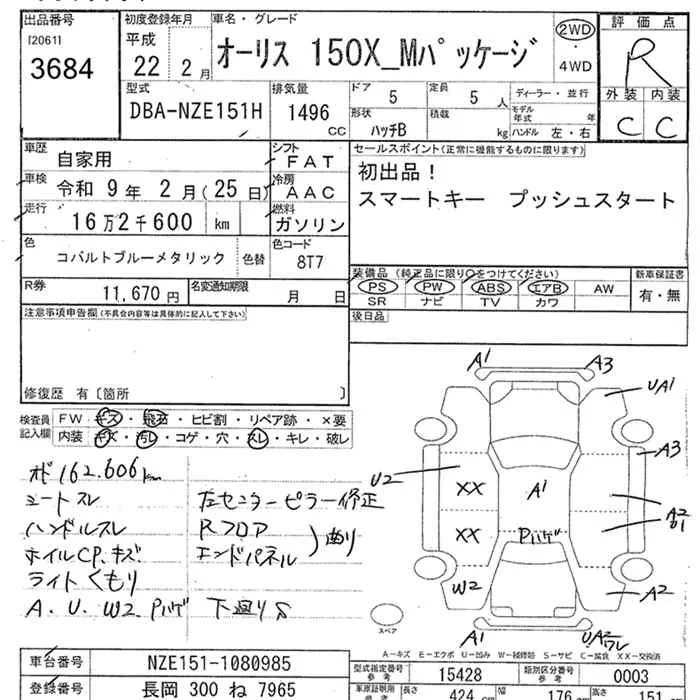 出品番号 初度登録年月 車名・グレード 2WD 評価点
[2061] 平成 オーリス 150X_Mパッケージ ・ R
3684 22年 2月 4WD 外装 内装
型式 排気量 ドア 定員 ディーラー・並行 C C
DBA-NZE151H 1496 CC 5 5人 モデル年式 年
形状 積載 ハッチB kg ハンドル 左・右
車歴 自家用 シフト FAT セールスポイント(正常に機能するものに限ります)
車検 令和 9年 2月(25日) 冷房 AAC 初出品!
走行 16万2千600 km 燃料 ガソリン スマートキー プッシュスタート
色 コバルトブルーメタリック 色替 色コード 8T7
装備品(純正品に限り○をつけてください) 新車保証書
PS PW ABS エアB AW 有・無
SR ナビ TV カワ
R券 11,670円 名変通知期限 月 日
後日品
注意事項申告欄(不具合内容等は具体的に記入して下さい)
修復歴 有〔箇所 〕
検査員記入欄 FW キズ・飛石・ヒビ割・リペア跡・×要
内装 キズ・汚レ・コゲ・穴・スレ・キレ・破レ
メーター 162.606km
シートスレ 左センターピラー修正
ハンドルスレ Rフロア
ホイルCP.キズ エンドパネル )曲り
ライトくもり
A.U.W2.Pバゲ 下廻りS
A1 A3
UA1
A3
U2 XX A1
A2
XX Pバゲ
W2 A2
スペア
A1 UA2ワレ
A-キズ E-エクボ U-凹み W-補修跡 S-サビ C-腐食 XX-交換済
車台番号 NZE151-1080985 型式指定番号 参考 15428 類別区分番号 参考 0003
登録番号 長岡 300 ね 7965 長さ 424 cm 幅 176 cm 高さ 151